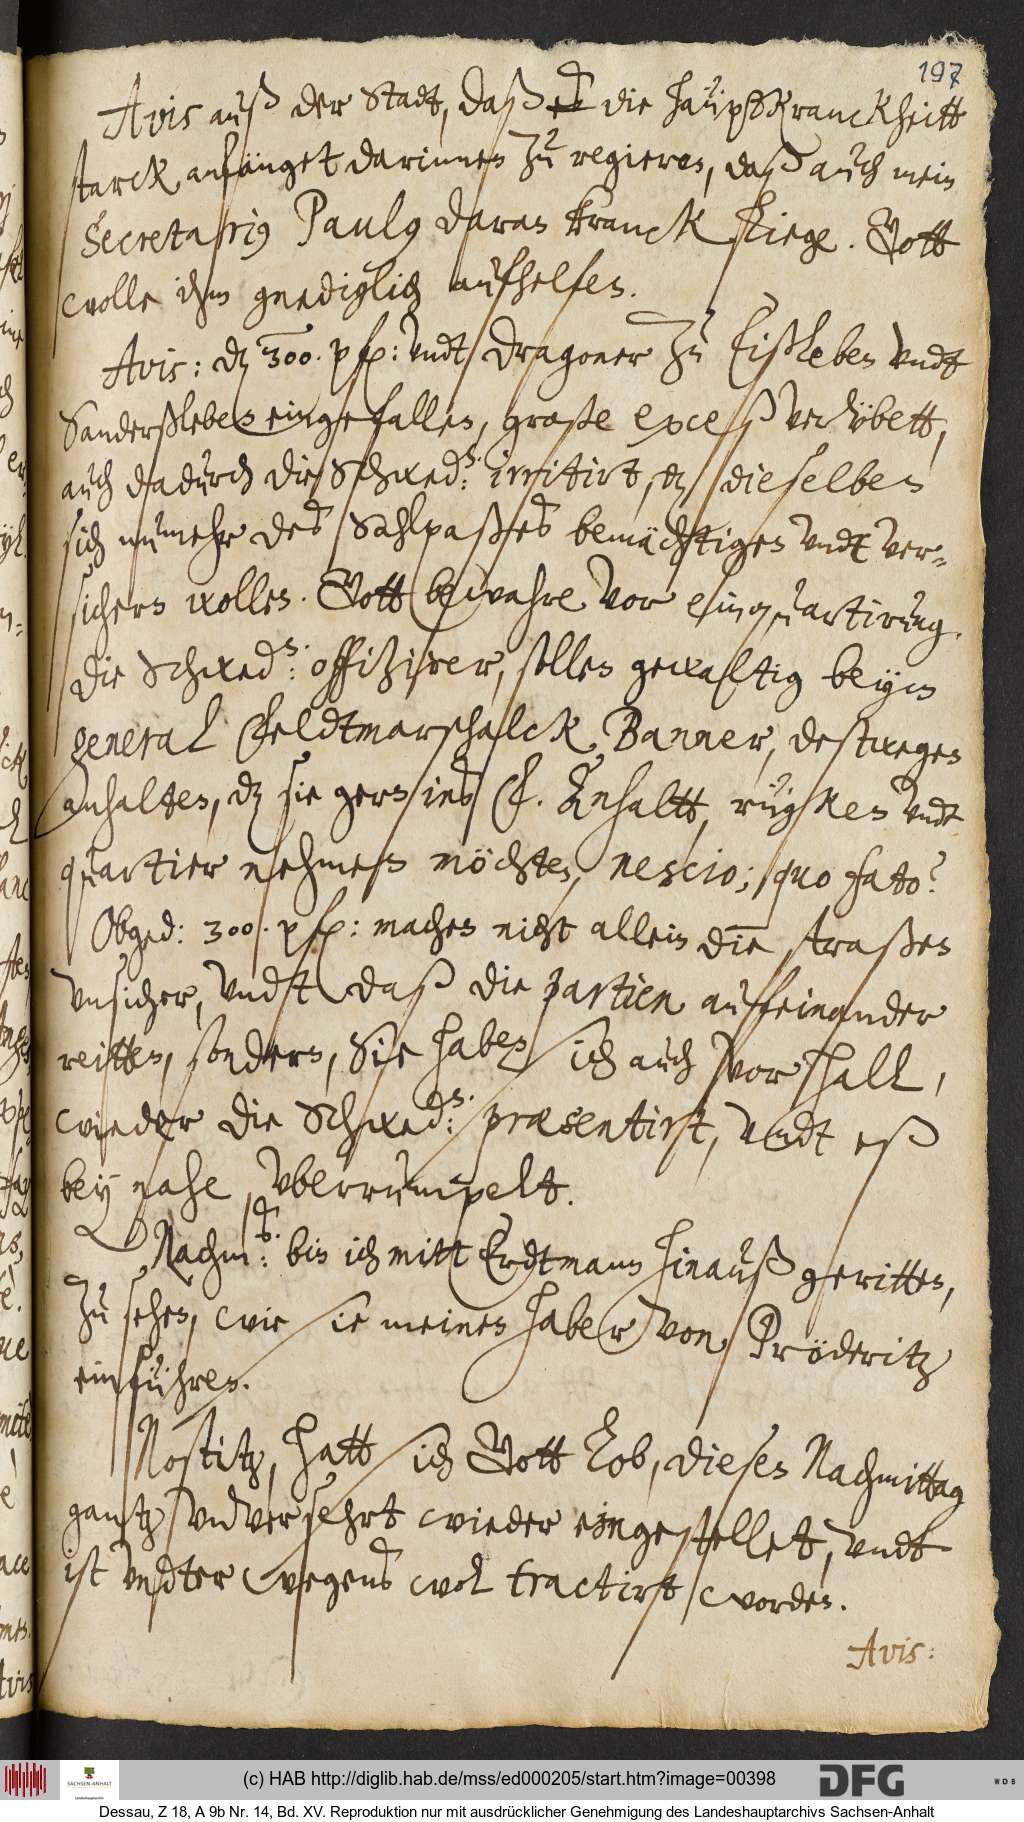 197
Avis auß der Stadt, daß die hauptkranckheitt
starck anfänget darinnen zu regieren, daß auch mein
Secretarius Paulus daran kranck liege. Gott
wolle ihm gnediglich aufhelfen.
Avis: dz 300. pf: undt Dragoner zu Eißleben undt
Sanderßleben eingefallen, große exceß verübett,
auch dadurch die Schwed: irritirt, dz dieselben
sich nunmehr des Sahlpaßes bemächtigen undt ver-
sichern wollen. Gott bewahre vor einquartirung.
Die Schwed: offizirer, sollen gewaltig beym
general Feldtmarschalck Banner, deßwegen
anhalten, dz sie gern ins F. Anhaltt, rügken undt
quartier nehmen möchten, nescio; quo fato?
Obged: 300. pf: machen nicht allein die straßen
unsicher, undt daß die partien auf einander
reitten, sondern, Sie haben sich auch vor Hall,
wieder die Schwed: præsentirt, undt eß
bey nahe uberrumpelt.
Nachm: bin ich mitt Erdtmann hinauß geritten,
zu sehen, wie sie meinen haber von Pröderitz
einführen.
Nostitz, hatt sich Gott lob, diesen Nachmittag
gantz unversehrt wieder eingestellet, undt
ist unterwegens wol tractirt worden.
Avis:
(c) HAB http://diglib.hab.de/mss/ed000205/start.htm?image=00398
SACHSEN-ANHALT
DFG
WDB
Dessau, Z 18, A 9b Nr. 14, Bd. XV. Reproduktion nur mit ausdrücklicher Genehmigung des Landeshauptarchivs Sachsen-Anhalt